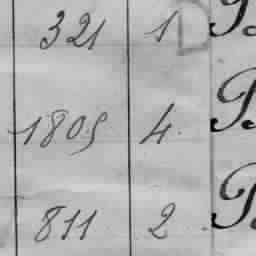 321 1
1805 4.
811 2